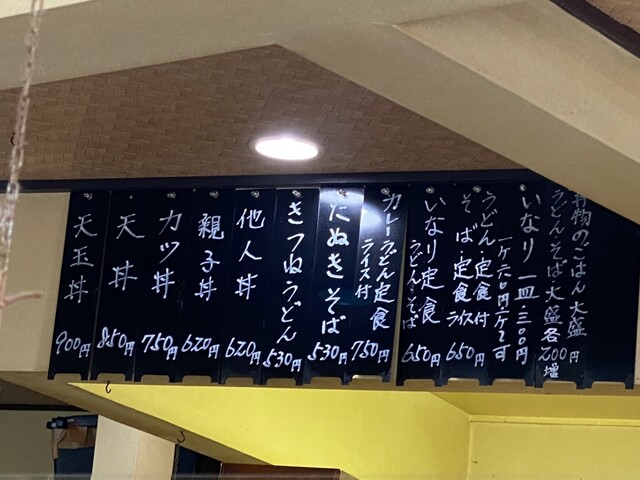 丼物のごはん大盛
うどんそば大盛各200円増
いなり一皿三三〇円
一ケ六〇円二ケ〜です
うどん定食
そば定食ライス付
650円
いなり定食
うどん・そば
650円
カレーうどん定食
ライス付
750円
たぬきそば
530円
きつねうどん
530円
他人丼
620円
親子丼
620円
カツ丼
750円
天丼
850円
天玉丼
900円